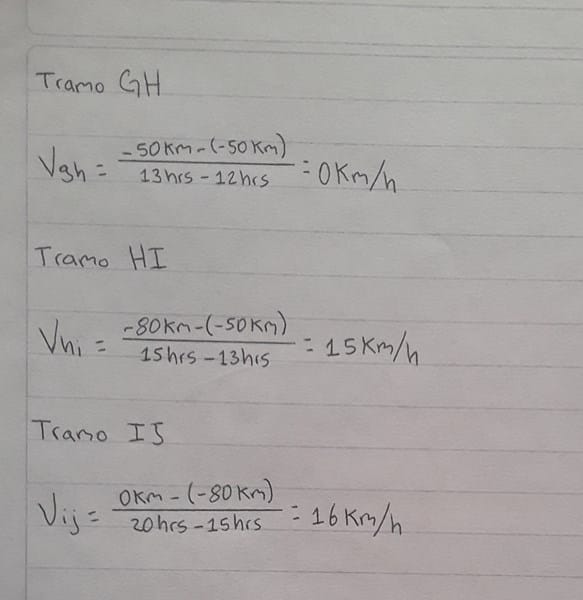 Tramo GH
Vgh = -50Km-(-50Km) / 13hrs - 12hrs = 0Km/h
Tramo HI
Vhi = -80Km-(-50Km) / 15hrs - 13hrs = 15Km/h
Tramo IJ
Vij = 0Km - (-80Km) / 20hrs - 15hrs = 16Km/h